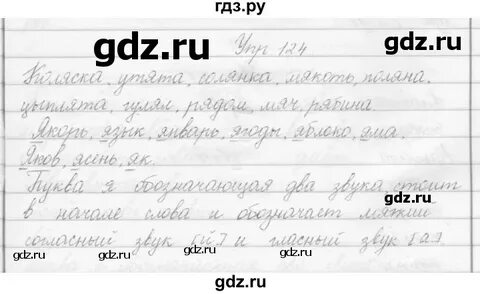 гдз.ру
gdz.ru gdz.ru
Упр 124
Коляска, утята, солянка, мякоть, поляна,
цыплята, гулял, рядом, мяч, рябина
Якорь, язык, январь, ягоды, яблоко, яма,
Яков, ясень, як.
gdz.ru gdz.ru
Буква я обозначающая два звука стоит
в начале слова и обозначает мягкий
согласный звук [й'] и гласный звук [а]
gdz.ru gdz.ru